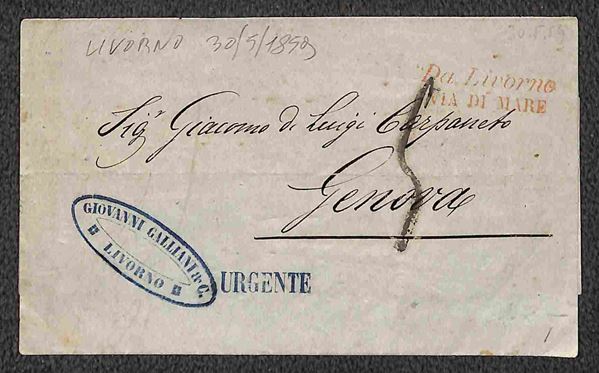 LIVORNO 30/5/1859
30.5.59
Da Livorno
VIA DI MARE
Sig.r Giacomo di Luigi Carpaneto
Genova
5
GIOVANNI GALLIANI & C.
LIVORNO
URGENTE